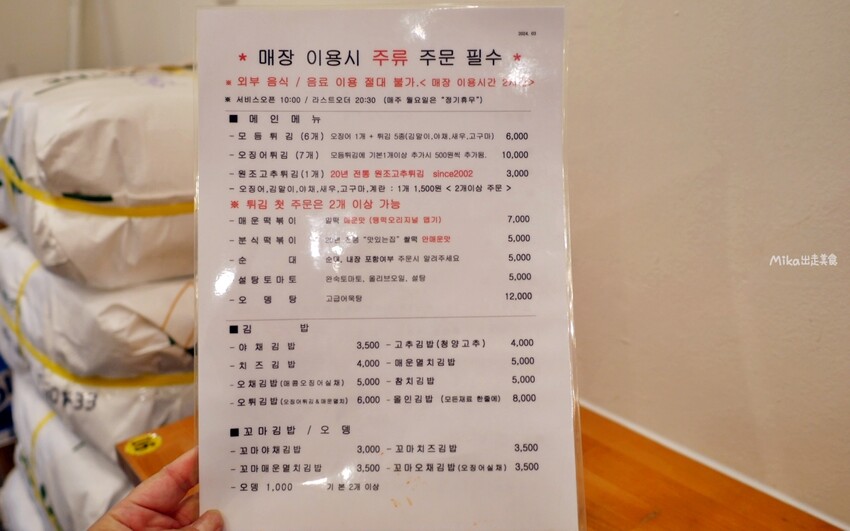 2024. 03
* 매장 이용시 주류 주문 필수 *
※ 외부 음식 / 음료 이용 절대 불가.< 매장 이용시간 2시간>
※ 서비스오픈 10:00 / 라스트오더 20:30 (매주 월요일은 "정기휴무")
■ 메 인 메 뉴
- 모 듬 튀 김 (6개) 오징어 1개 + 튀김 5종(김말이,야채,새우,고구마) 6,000
- 오징어튀김 (7개) 모듬튀김에 기본1개이상 추가시 500원씩 추가됨. 10,000
- 원조고추튀김(1개) 20년 전통 원조고추튀김 since2002 3,000
- 오징어,김말이,야채,새우,고구마,계란 : 1개 1,500원 < 2개이상 주문 >
※ 튀김 첫 주문은 2개 이상 가능
- 매운떡볶이 밀떡 매운맛 (맹떡오리지널 맵기) 7,000
- 분식떡볶이 "맛있는집" 쌀떡 안매운맛 5,000
- 순 대 순대, 내장 포함여부 주문시 말려주세요 5,000
- 설탕토마토 완숙토마토, 올리브오일, 설탕 5,000
- 오 뎅 탕 고급어묵탕 12,000
■ 김 밥
- 야 채 김 밥 3,500 - 고추김밥(청양고추) 4,000
- 치 즈 김 밥 4,000 - 매운멸치김밥 5,000
- 오채김밥(매콤오징어실채) 5,000 - 참치김밥 5,000
- 오튀김밥(오징어튀김&매운멸치) 6,000 - 올인김밥 (모든재료 한줄에) 8,000
■ 꼬마김밥 / 오 뎅
- 꼬마야채김밥 3,000 - 꼬마치즈김밥 3,500
- 꼬마매운멸치김밥 3,500 - 꼬마오채김밥(오징어실채) 3,500
- 오뎅 1,000 기 본 2개 이상
Mika出走美食